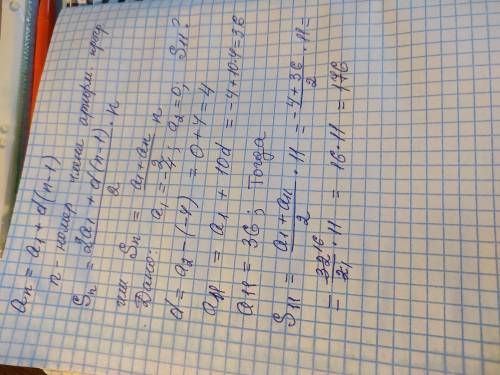 an = a1 + d(n-1)
n - номер члена арифм. прогр.
Sn = 2a1 + d(n-1) / 2 · n
или Sn = a1 + an / 2 n
Дано: a1 = -4; a2 = 0; S11?
d = a2 - (-4) = 0 + 4 = 4
a11 = a1 + 10d = -4 + 10·4 = 36
a11 = 36; Тогда
S11 = a1 + a11 / 2 · 11 = -4 + 36 / 2 · 11 =
= 32 16 / 2 1 · 11 = 16 · 11 = 176